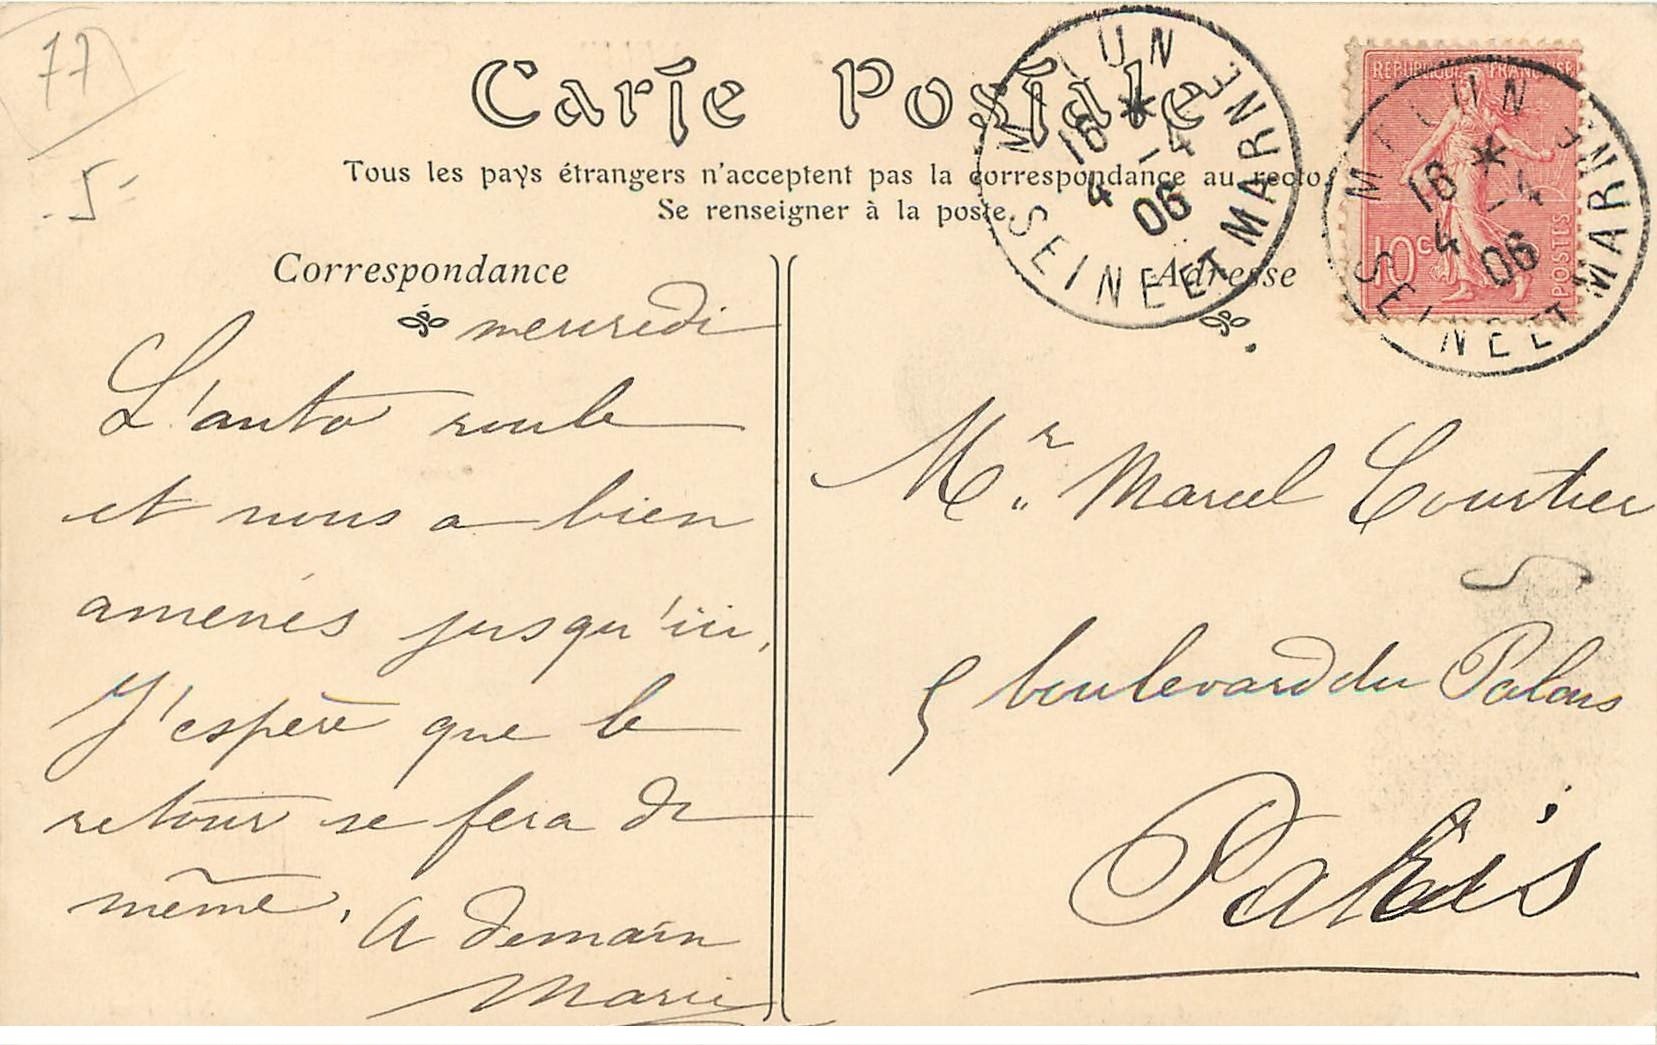 77
5
Carte Postale
Tous les pays étrangers n'acceptent pas la correspondance au recto
Se renseigner à la poste.
MELUN
16 *
4 - 4
06
SEINE ET MARNE
REPUBLIQUE FRANÇAISE
10c
POSTES
MELUN
16 *
4 - 4
06
SEINE ET MARNE
Correspondance
mercredi
L'auto roule
et nous a bien
amenés jusqu'ici,
J'espère que le
retour se fera de
même. A demain
Marie
Adresse
Mr. Marcel Courtier
5 boulevard du Palais
Paris